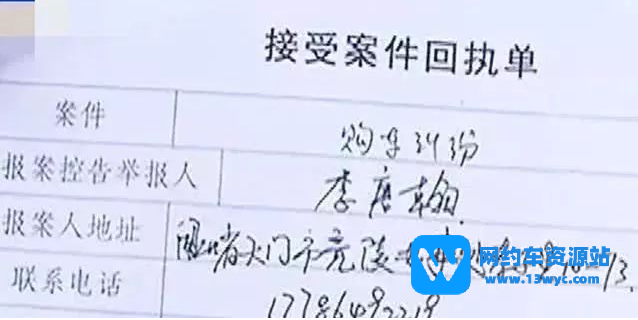 接受案件回执单
案件 购车纠纷
报案控告举报人 李唐
报案人地址 省天门市竟陵
联系电话 17786492219
网约车资源站
www.13wyc.com